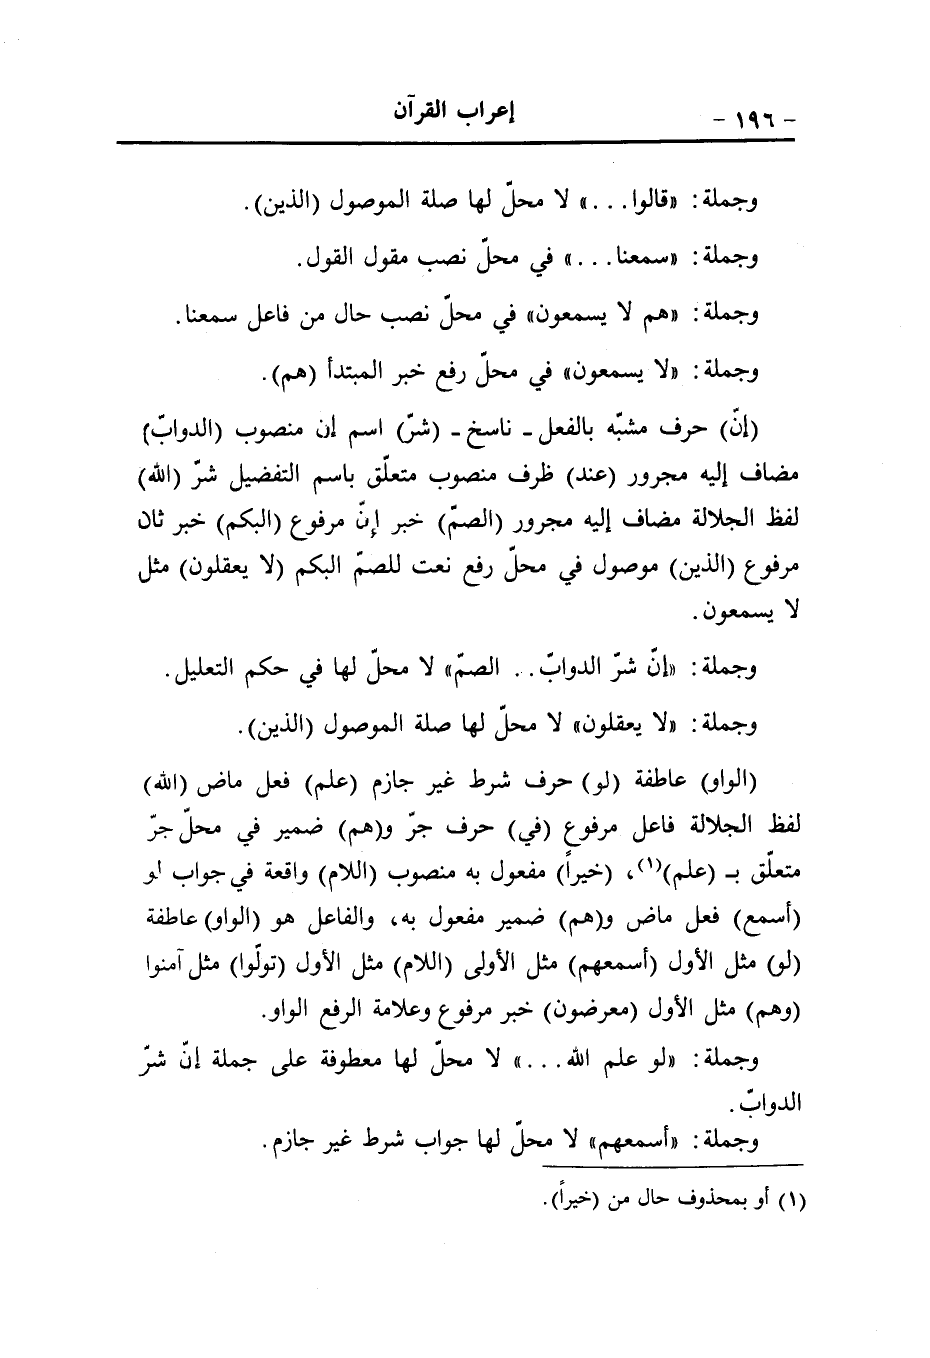 - ١٩٦ -
إعراب القرآن
وجملة: «قالوا...» لا محلّ لها صلة الموصول (الذين).
وجملة: «سمعنا...» في محلّ نصب مقول القول.
وجملة: «هم لا يسمعون» في محلّ نصب حال من فاعل سمعنا.
وجملة: «لا يسمعون» في محلّ رفع خبر المبتدأ (هم).
(إنّ) حرف مشبّه بالفعل - ناسخ - (شرّ) اسم إن منصوب (الدوابّ)
مضاف إليه مجرور (عند) ظرف منصوب متعلّق باسم التفضيل شرّ (الله)
لفظ الجلالة مضاف إليه مجرور (الصمّ) خبر إنّ مرفوع (البكم) خبر ثان
مرفوع (الذين) موصول في محلّ رفع نعت للصمّ البكم (لا يعقلون) مثل
لا يسمعون.
وجملة: «إنّ شرّ الدوابّ.. الصمّ» لا محلّ لها في حكم التعليل.
وجملة: «لا يعقلون» لا محلّ لها صلة الموصول (الذين).
(الواو) عاطفة (لو) حرف شرط غير جازم (علم) فعل ماض (الله)
لفظ الجلالة فاعل مرفوع (في) حرف جرّ و(هم) ضمير في محلّ جرّ
متعلّق بـ (علم)(١)، (خيراً) مفعول به منصوب (اللام) واقعة في جواب لو
(أسمع) فعل ماض و(هم) ضمير مفعول به، والفاعل هو (الواو) عاطفة
(لو) مثل الأول (أسمعهم) مثل الأولى (اللام) مثل الأول (تولّوا) مثل آمنوا
(وهم) مثل الأول (معرضون) خبر مرفوع وعلامة الرفع الواو.
وجملة: «لو علم الله...» لا محلّ لها معطوفة على جملة إنّ شرّ
الدوابّ.
وجملة: «أسمعهم» لا محلّ لها جواب شرط غير جازم.
(١) أو بمحذوف حال من (خيراً).